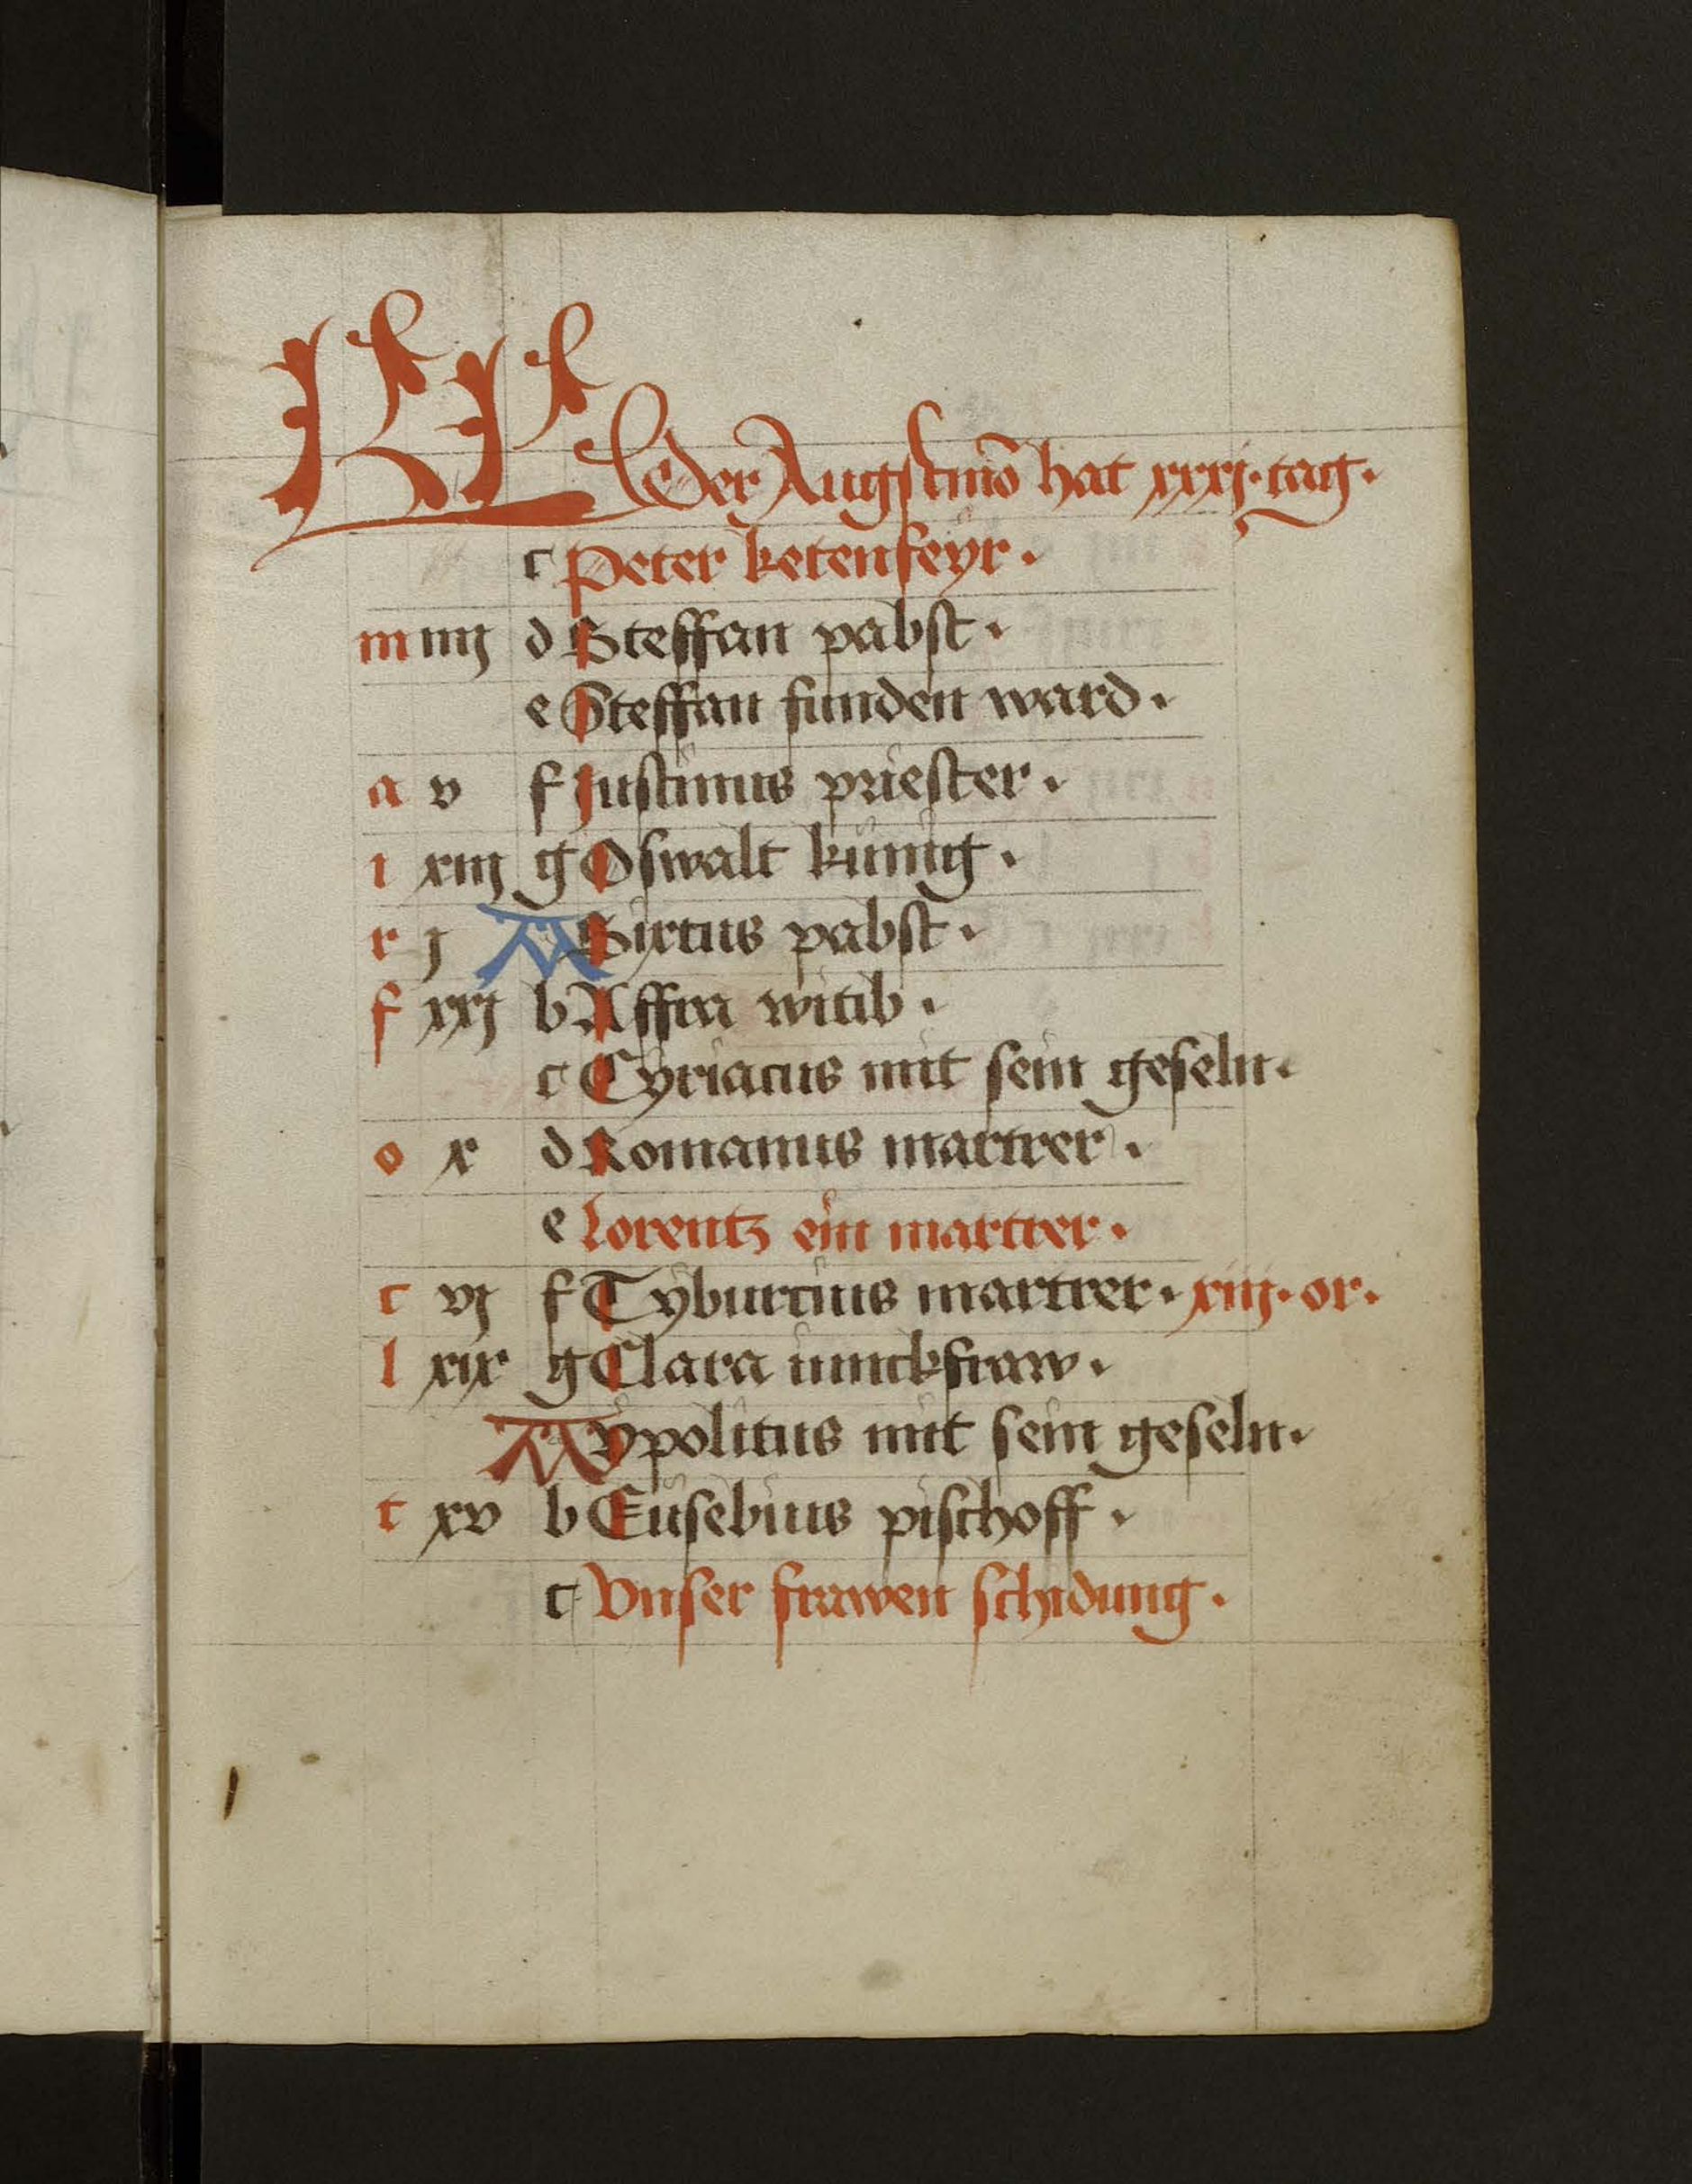 KL Der Augstmō hat xxxj · tag ·
c Peter ketenfeyr ·
m iiij d Steffan pabst ·
e Steffan funden ward ·
a v f Justinus priester ·
i xiij g Oswalt künig ·
r j A Sixtus pabst ·
f xxj b Affra witib ·
c Cyriacus mit sein geseln ·
o x d Romanus martrer ·
e Lorentz ein martrer ·
c vj f Tyburcius martrer · xiiij · or ·
l xix g Clara iunckfraw ·
A ypolitus mit sein geseln ·
t xv b Eusebius pischoff ·
c Vnser frawen schidung ·